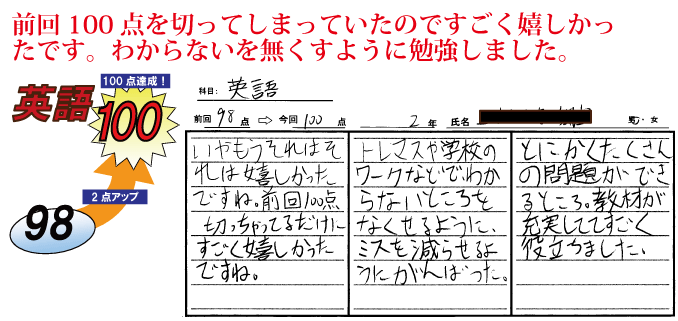 前回100点を切ってしまっていたのですごく嬉しかっ
たです。わからないを無くすように勉強しました。
100点達成！
英語
100
2点アップ
98
科目: 英語
前回 98 点 ⇨ 今回 100 点
2 年 氏名
男・女
いやもうそれはそ
れは嬉しかった
ですね。前回100点
切っちゃってるだけに
すごく嬉しかった
ですね。
トレマスや学校の
ワークなどでわか
らないところを
なくせるように、
ミスを減らせるよ
うにがんばった。
とにかくたくさん
の問題ができ
るところ。教材が
充実しててすごく
役立ちました。